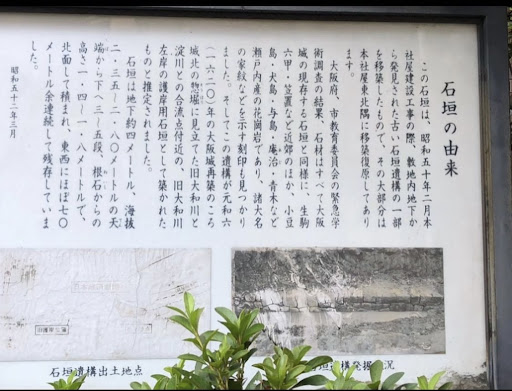 石垣の由来
この石垣は、昭和五十年二月本
社屋建設工事の際、敷地内地下か
ら発見された古い石垣遺構の一部
を移築したもので、その大部分は
本社屋東北隅に移築復原してあり
ます。
大阪府、市教育委員会の緊急学
術調査の結果、石材はすべて大阪
城の現存する石垣と同様に、生駒
六甲・笠置など近郊のほか、小豆
島・犬島・与島・庵治・青木など
瀬戸内産の花崗岩であり、諸大名
の家紋などを示す刻印も見つかり
ました。そしてこの遺構が元和六
(一六二〇)年の大阪城再築のころ
城北の物堀に見立てた旧大和川と
淀川との合流点付近の、旧大和川
左岸の護岸用石垣として築かれた
ものと推定されました。
石垣は地下約四メートル、海抜
二・三五〜二・八〇メートルの天
端から下へ三〜五段、根石からの
高さ一・四〜一・八メートルで、
北面して積まれ、東西にほぼ七〇
メートル余連続して残存していま
した。
昭和五十二年三月
石垣遺構出土地点
石垣遺構発掘状況